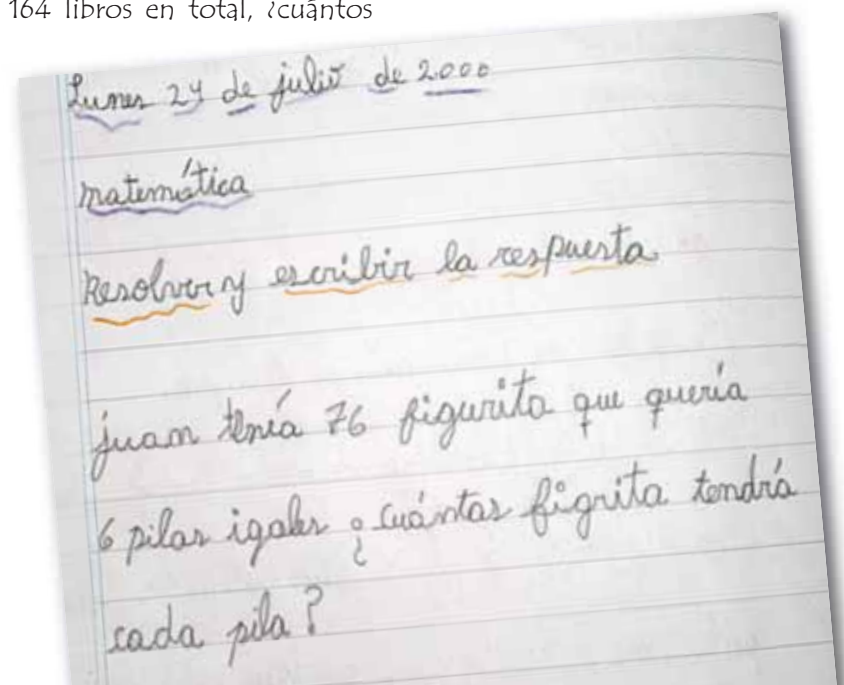 164 libros en total, ¿cuántos
Lunes 24 de julio de 2000
matemática
Resolver y escribir la respuesta
juan tenía 76 figurita que quería
6 pilas igales ¿cuántas figrita tendría
cada pila?